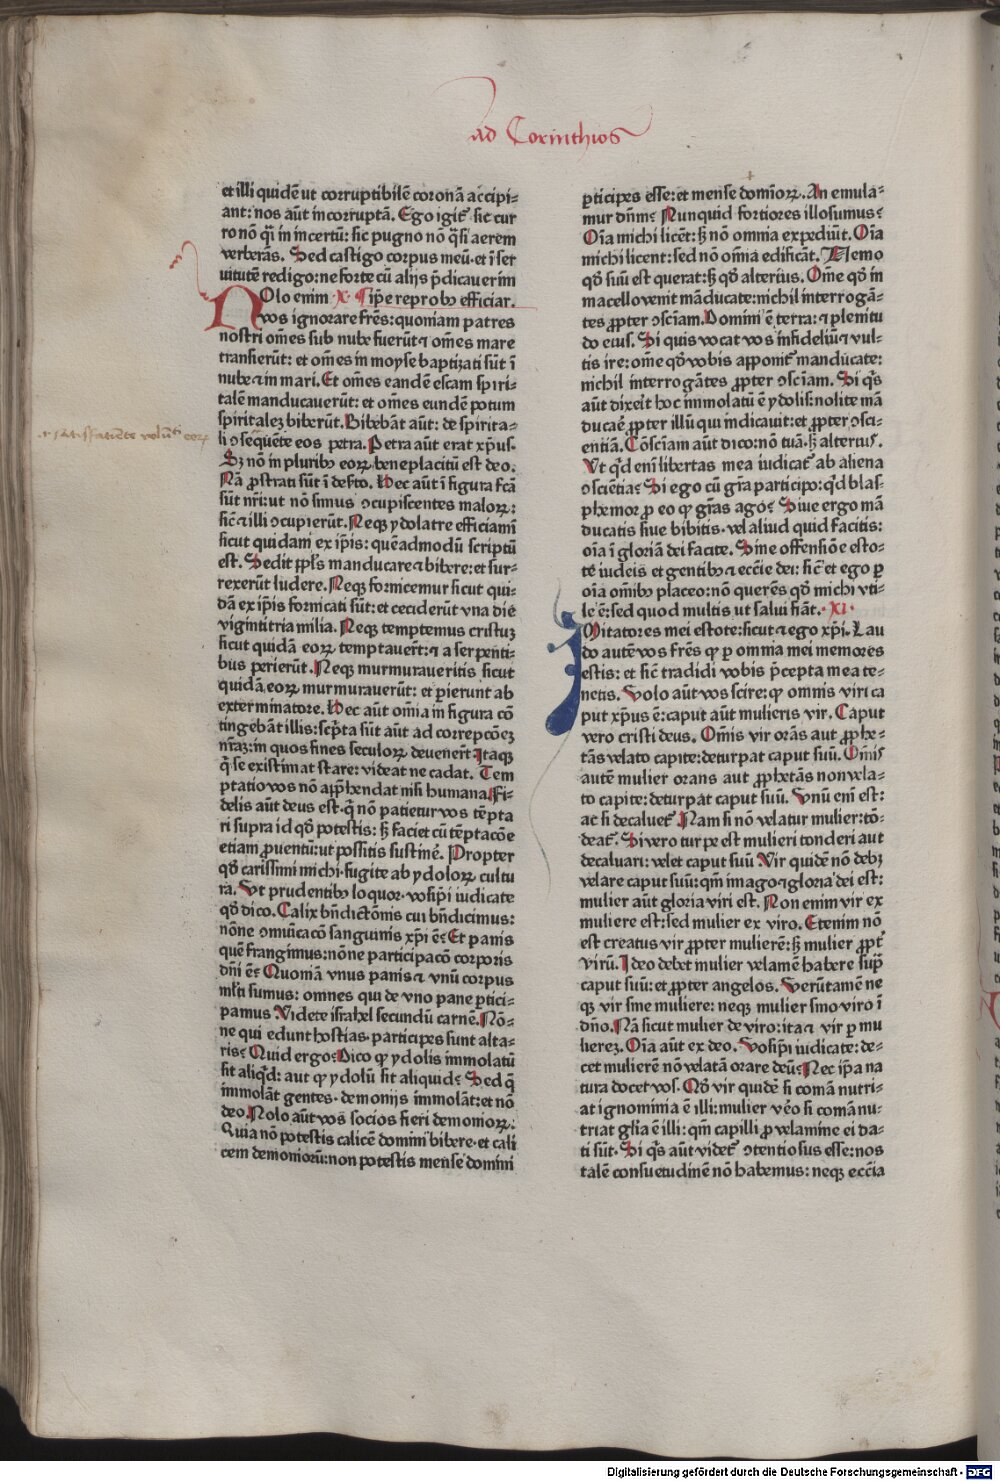 ad Corinthios
et illi quidē ut corruptibilē coronā accipi⸗
ant: nos aūt incorruptā. Ego igit᷑ sic cur
ro nō q̄si in incertū: sic pugno nō q̄si aerem
verberās. Sed castigo corpus meū· et ī ser
uitutē redigo: ne forte cū alijs p̄dicauerim
Nolo enim ·X· ip̄e reprobꝰ efficiar.
vos ignorare fr̄es: quoniam patres
nostri om̄es sub nube fuerūt ⁊ om̄es mare
transierūt: et om̄es in moyse baptizati sūt ī
nube ⁊ in mari. Et om̄es eandē escam spiri⸗
talē manducauerūt: et om̄es eundē potum
spiritalez biberūt. Bibebāt aūt: de spirita⸗
li ↄsequēte eos petra. Petra aūt erat xp̄us.
Sꝫ nō in pluribꝰ eoꝝ beneplacitū est deo.
Nā ꝓstrati sūt ī deẜto. Hec aūt ī figura fcā
sūt nr̄i: ut nō simus ↄcupiscentes maloꝝ:
sic̄ ⁊ illi ↄcupierūt. Neqꝫ ydolatre efficiami
sicut quidam ex ip̄is: quēadmodū scriptū
est. Sedit ppl̄s manducare ⁊ bibere: et sur⸗
rexerūt ludere. Neqꝫ fornicemur sicut qui⸗
dā ex ip̄is fornicati sūt: et ceciderūt vna die
viginti tria milia. Neqꝫ temptemus cristuꝫ
sicut quidā eoꝝ temptauer̄t: ⁊ a serpenti⸗
bus perierūt. Neqꝫ murmuraueritis sicut
quidā eoꝝ murmurauerūt: et ꝑierunt ab
exterminatore. Hec aūt om̄ia in figura cō
tingebāt illis: sc̄pta sūt aūt ad correpcōeꝫ
nr̄aꝫ: in quos fines seculoꝝ deuener̄t Itaqꝫ
q̄ se existimat stare: videat ne cadat. Tem
ptatio vos nō app̄hendat nisi humana. Fi⸗
delis aūt deus est· q̄ nō patietur vos tēpta
ri supra id qd̄ potestis: sꝫ faciet cū tēptacōe
etiam ꝓuentū: ut possitis sustinē. Propter
qd̄ carissimi michi· fugite ab ydoloꝝ cultu
ra. Vt prudentibꝰ loquor· vosip̄i iudicate
qd̄ dico. Calix bn̄dictōnis cui bn̄dicimus:
nōne ↄmūicacō sanguinis xp̄i ē? Et panis
quē frangimus: nōne participacō corporis
dn̄i ē? Quoniā vnus panis ⁊ vnū corpus
ml̄ti sumus: omnes qui de vno pane ꝑtici⸗
pamus Videte israhel secundū carnē. Nō⸗
ne qui edunt hostias· participes sunt alta⸗
ris? Quid ergo? Dico ꝙ ydolis immolatū
sit aliqd̄: aut ꝙ ydolū sit aliquid? Sed q̄
immolāt gentes· demonijs immolāt: et nō
deo. Nolo aūt vos socios fieri demonioꝝ:
Quia nō potestis calicē domini bibere· et cali
cem demonioꝝ: non potestis mense domini
ꝑticipes esse: et mense domīoꝝ. An emula⸗
mur dn̄m? Nunquid fortiores illo sumus?
Oīa michi licēt: sꝫ nō omnia expediūt. Oīa
michi licent: sed nō om̄ia edificāt. Nemo
qd̄ suū est querat: sꝫ qd̄ alterius. Om̄e qd̄ in
macello venit māducate: nichil interrogā⸗
tes ꝓpter ↄsciam. Domini ē terra: ⁊ plenitu
do eius. Si quis vocat vos infideliū ⁊ vul⸗
tis ire: ome qd̄ vobis apponit᷑ manducate:
nichil interrogātes ꝓpter ↄsciam. Si q̄s
aūt dixeit hoc immolatū ē ydolis: nolite mā
ducaē ꝓpter illū qui indicauit: et ꝓpter ↄsci⸗
entiā. Cōsciam aūt dico: nō tuā· sꝫ alteriꝰ.
Vt qd̄ eni libertas mea iudicat᷑ ab aliena
ↄscientia? Si ego cū gr̄a participo: qd̄ blas⸗
phemor ꝓ eo ꝙ gr̄as ago? Siue ergo mā
ducatis siue bibitis· vel aliud quid facitis:
oīa ī gloriā dei facite. Sine offensiōe esto⸗
te iudeis et gentibꝰ ⁊ ecc̄ie dei: sic̄ et ego ꝑ
oīa om̄ibꝰ placeo: nō querēs qd̄ michi vti⸗
le ē: sed quod multis ut salui fiāt. ·XI·
Imitatores mei estote: sicut ⁊ ego xp̄i. Lau
do autē vos fr̄es ꝙ ꝑ omnia mei memores
estis: et sic̄ tradidi vobis p̄cepta mea te⸗
netis. Volo aūt vos scire: ꝙ omnis viri ca
put xp̄us ē: caput aūt mulieris vir. Caput
vero cristi deus. Om̄is vir orās aut ꝓphe⸗
tās velato capite: deturpat caput suū. Om̄is
autē mulier orans aut ꝓphetās non vela⸗
to capite: deturpat caput suū. Vnū enī est:
ac si decaluet᷑. Nam si nō velatur mulier: tō⸗
deat᷑. Si vero turpe est mulieri tonderi aut
decaluari: velet caput suū Vir quidē nō debꝫ
velare caput suū: qm̄ imago ⁊ gloria dei est:
mulier aūt gloria viri est. Non enim vir ex
muliere est: sed mulier ex viro. Etenim nō
est creatus vir ꝓpter mulierē: sꝫ mulier ꝓpt᷑
virū. Ideo debet mulier velamē habere sup̄
caput suū: et ꝓpter angelos. Verūtamē ne
qꝫ vir sine muliere: neqꝫ mulier sino viro ī
dn̄o. Nā sicut mulier de viro: ita ⁊ vir ꝑ mu
liereꝫ. Oīa aūt ex deo. Vosip̄i iudicate: de⸗
cet mulierē nō velatā orare deū? Nec ip̄a na
tura docet vos. Qd̄ vir quidē si comā nutri⸗
at ignominia ē illi: mulier v̄o si comā nu⸗
triat gl̄ia ē illi: qm̄ capilli ꝓ velamine ei da⸗
ti sūt. Si q̄s aūt videt᷑ ↄtentiosus esse: nos
talē consuetudinē nō habemus: neqꝫ ecc̄ia
Digitalisierung gefördert durch die Deutsche Forschungsgemeinschaft - DFG